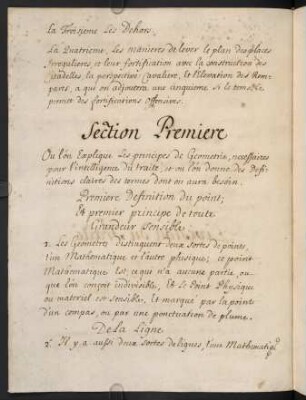 La Troisieme Les Dehors.
La Quatrieme, les manieres de lever le plan des places
Irregulieres et leur fortification avec la construction des
citadelles la perspective Cavaliere, et l'Elevation des Rem-
parts, a qui on adjoutera une cinquieme si le tems le
permet des fortifications offensives.
Section Premiere
Ou l'on Explique Les principes de Geometrie, necessaires
pour l'intelligence du traité, et ou l'on donne des Defi-
nitions claires des termes dont on aura besoin.
Premiere Definition du point;
Et premier principe de toute
Grandeur sensible
1. Les Geometres distinguent deux sortes de points,
l'un Mathematique et l'autre physique; ce point
Mathematique est, ce qui n'a aucune partie, ou
que l'on conçoit indivisible, Et le Point Physique
ou materiel est sensible, Et marqué par la pointe
d'un compas, ou par une ponctuation de plume.
De la Ligne
2. Il y a aussi deux sortes de lignes, l'une Mathematiq